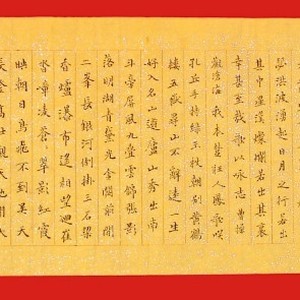 瑟洪波湧起日月之行若出
其中星漢燦爛若出其裏
幸甚至哉歌以詠志 曹操
觀滄海 我本楚狂人鳳歌笑
孔丘手持綠玉杖朝別黃鶴
樓五嶽尋山不辭遠一生
好入名山遊廬山秀出南
斗旁屏風九疊雲錦張影
落明湖青黛光金闕前開
二峯長銀河倒掛三石梁
香爐瀑布遙相望迴崖
沓嶂凌蒼蒼翠影紅霞
映朝日鳥飛不到吳天
長登高壯觀天地間大